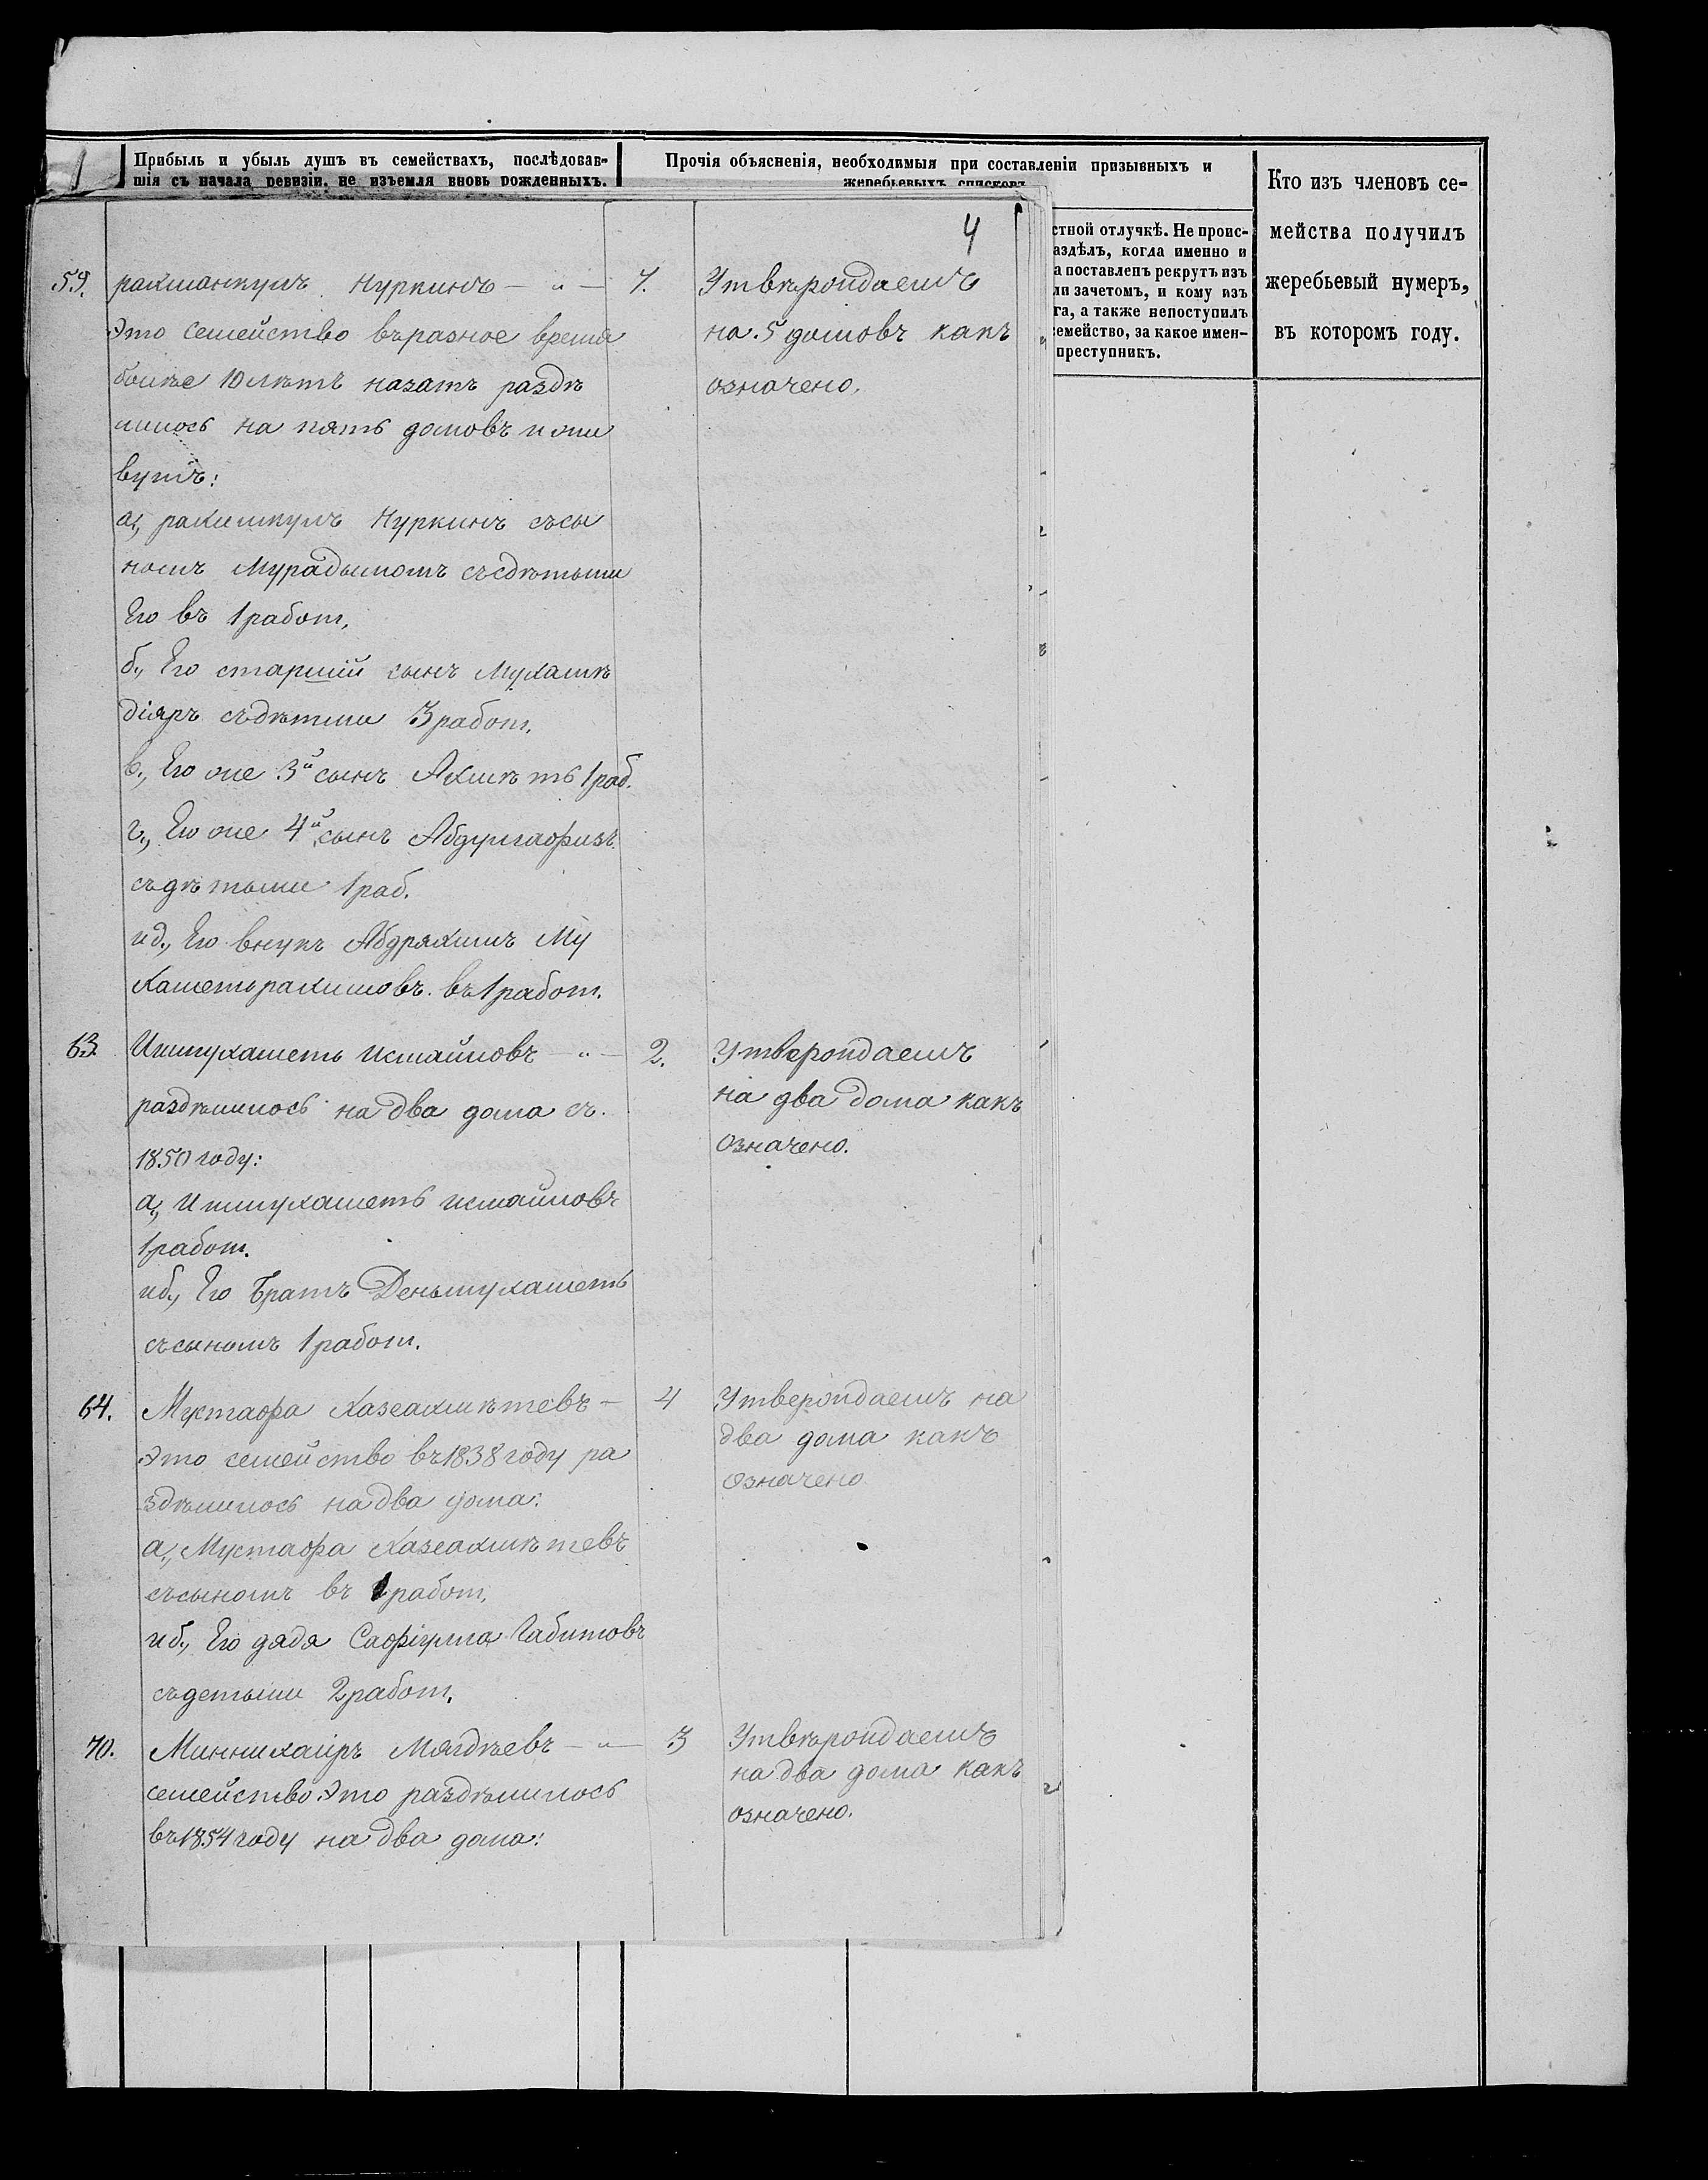 Прибыль и убыль душъ въ семействахъ, послѣдовав-
шія съ начала ревизіи, не изъемля вновь рожденныхъ.
Прочія объясненія, необходимыя при составленіи призывныхъ и
жеребьевыхъ списковъ
Кто изъ членовъ се-
мейства получилъ
жеребьевый нумеръ,
въ которомъ году.
стной отлучкѣ. Не проис-
аздѣлъ, когда именно и
а поставленъ рекрутъ изъ
ли зачетомъ, и кому изъ
га, а также непоступилъ
емейство, за какое имен-
преступникъ.
4
59. рахманкулъ Нуркинъ — „ — 7.
Это семейство въ разное время
болѣе 10 лѣтъ назатъ раздѣ
лилось на пять домовъ и жи
вутъ:
а, рахимкулъ Нуркинъ съсы
номъ Мурадымомъ съсдѣтьми
Его въ 1 работ,
б, Его старшій сынъ Мухамѣ
діяръ съдѣтми 3 работ.
в, Его же 3й сынъ Ахмѣть 1 раб.
г, Его же 4й сынъ Абдулгафизъ
съдѣтьми 1 раб.
ид, Его внукъ Абдряхимъ Му
хаметьрахимовъ въ 1 работ.
Утвѣрождаемъ
на 5 домовъ какъ
означено.
63. Ишмухаметь исмаиловъ — „ — 2.
раздѣлилось на два дома съ
1850 году:
а, Ишмухаметь исмаиловъ
1 работ.
иб, Его Братъ Деньмухаметь
съсыномъ 1 работ.
Утверождаемъ
на два дома какъ
означено.
64. Мустафа Хазеахмѣтевъ — 4
Это семейство въ 1838 году ра
здѣлилось на два дома:
а, Мустафа Хазеахмѣтевъ
съсыномъ въ 1 работ,
иб, Его дядя Сафіулла Габитовъ
съдетьми 2 работ.
Утверождаемъ на
два дома какъ
означено
70. Миннихаиръ Мягдѣевъ — „ — 3
семейство Это раздѣлилось
въ 1854 году на два дома:
Утвѣрождаемъ
на два дома какъ
означено.